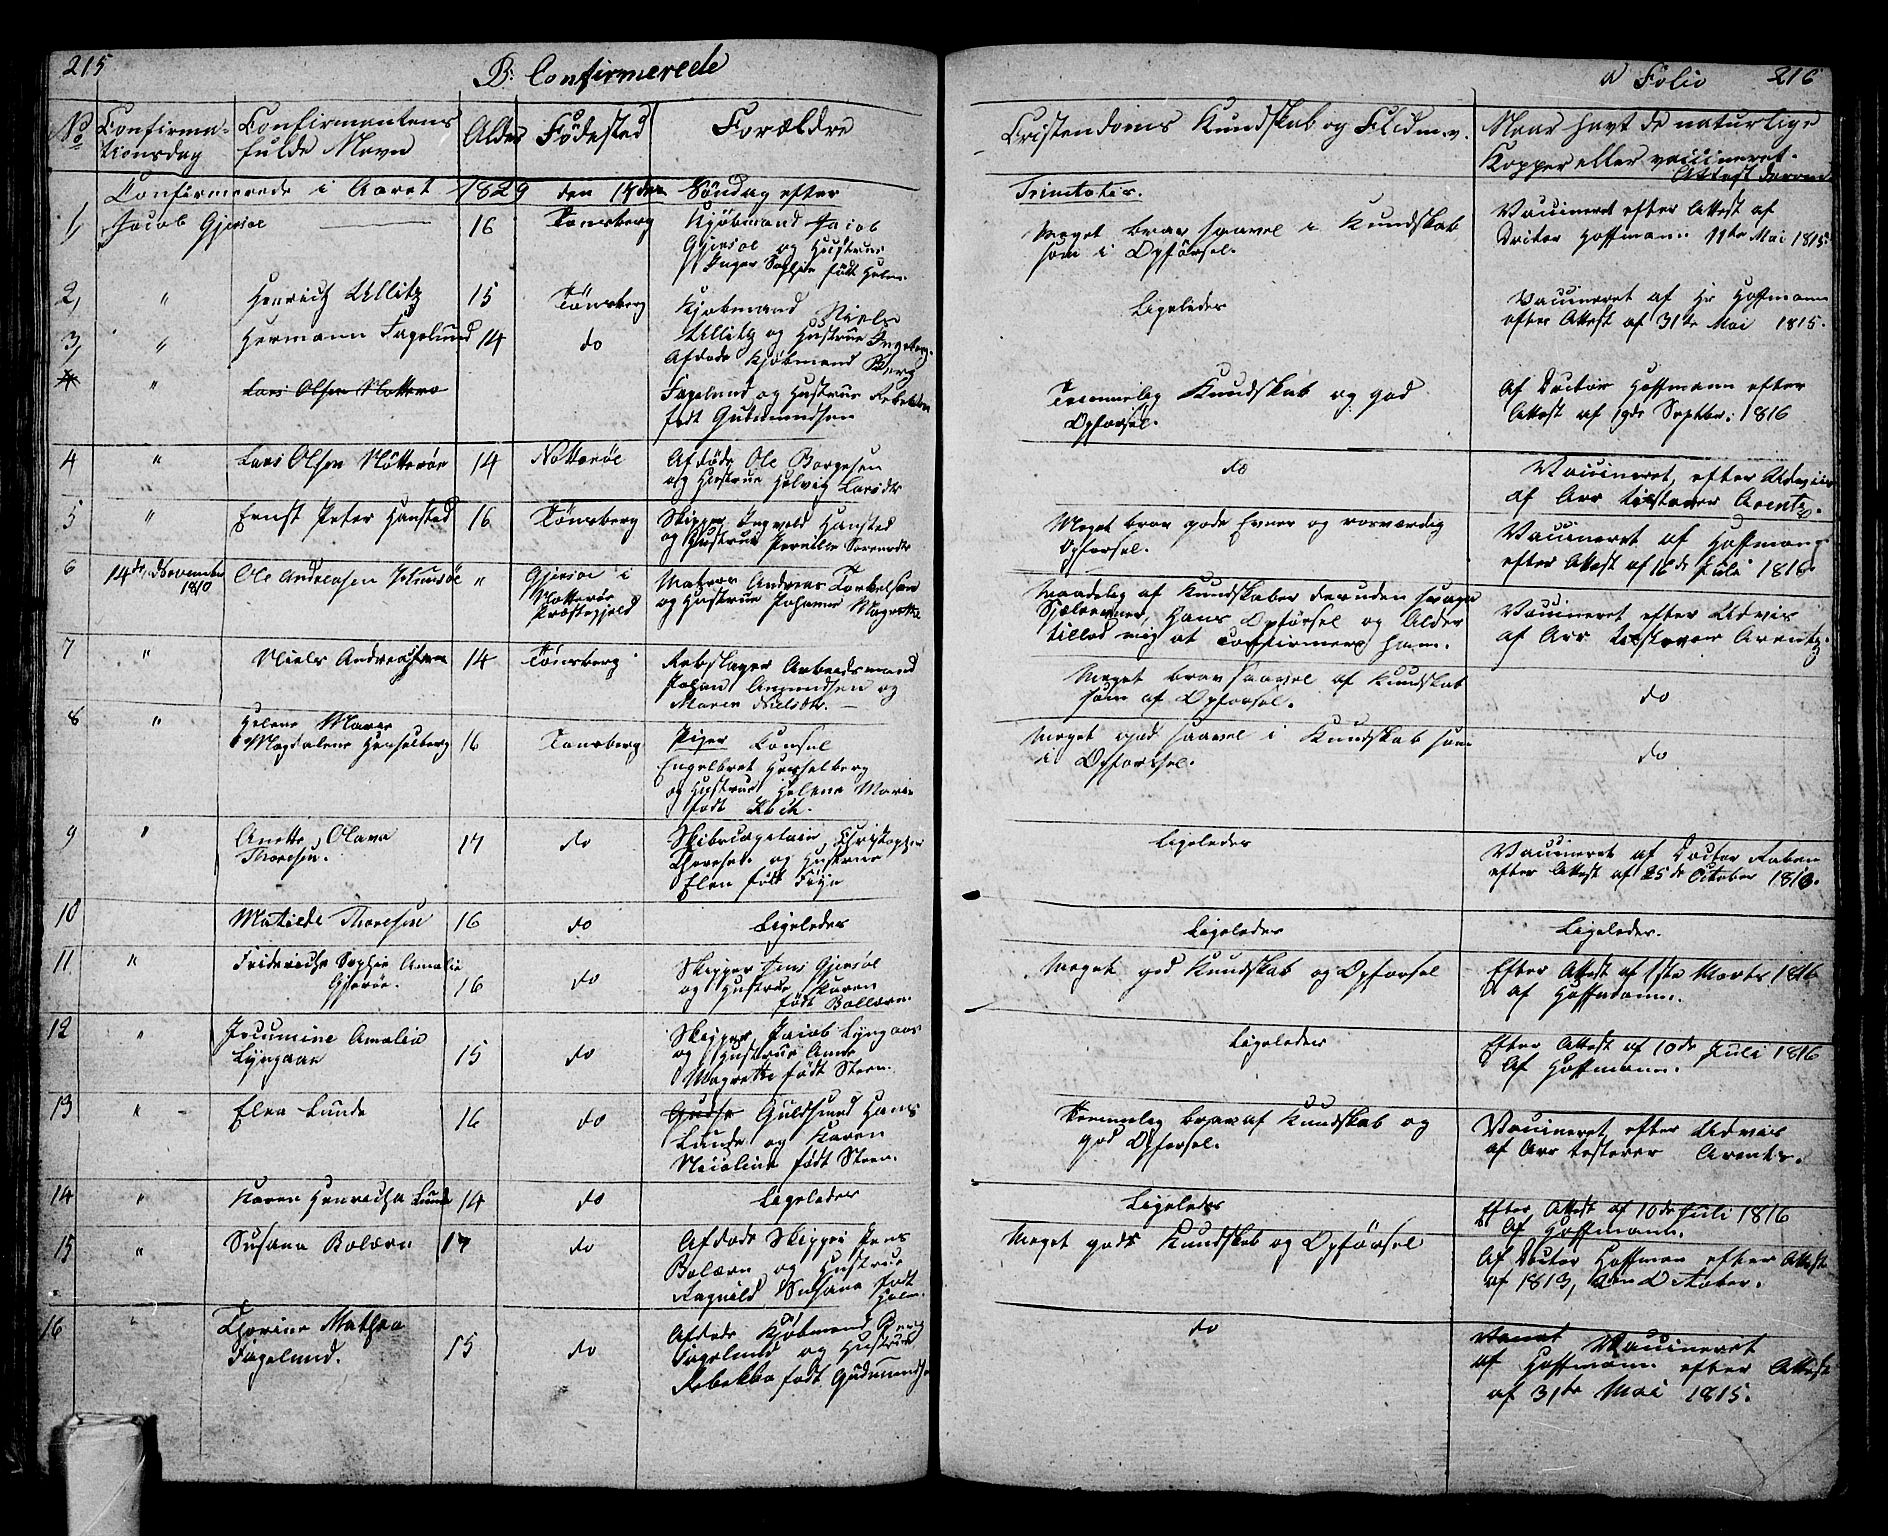 215
B: Confirmerede
No
Confirma-
tionsdag
Confirmantens
fulde Navn
Alder
Fødested
Forældre
Confirmerede i Aaret 1829 den 14de Søndag efter
1, Jacob Gjersøe 16 Tønsberg Kjøbmand Jacob
Gjersøe og Hustrue
Inger Sophie født Holm
2, " Henrich Ullitz 15 Tønsberg Kjøbmand Niels
Ullitz og Hustrue Ingeborg
3, " Hermann Fagelund 14 do Afdøde Kjøbmand Berg
Fagelund og Hustrue Rebekka
født Gudmundsen
4 " Lars Olsen Nøtterø
4 " Lars Olsen Nøtterøe 14 Nøtterøe Afdøde Ole Borgesen
og Hustrue Helvig Larsdtr
5 " Ernst Peter Hansted 16 Tønsberg Skipper Ingvold Hansted
og Hustrue Pernille Sørensdtr
6 14de November
1810 Ole Andreasen " Gjersøe i
Nøtterøe
Præstegjeld
Matros Andreas Torkelsen
og Hustrue Johanne Magrethe
7 " Niels Andreas 14 Tønsberg Rebslager Arbeidsmand
Johan Amundsen og
Maren Nielsdtr. —
8 " Helene Maren
Magdalene Hesselberg 16 Tønsberg Piger Consul
Engelbret Hesselberg
og Hustrue Helene Marie
født
9 " Anette Olava
Thoresen. 17 do Skibscapitain Christopher
Thoresen og Hustrue
Elen født
10 Matilde Thoresen 16 do Ligeledes
11 " Fridericha Sophie Amalie
Gjersøe. 16 do Skipper Jens Gjersøe
og Hustrue Karen
født Bollærn.
12 " Amalia
Lyngaas 15 do Skipper Jacob Lyngaas
og Hustrue Anne
Magrethe født Steen.
13 " Elen Lunde 16 do Guldsmed Hans
Lunde og Karen
Nicoline født Steen.
14 " Karen Henricha Lunde 14 do Ligeledes
15 " Susana Bolærn 17 do Afdøde Skipper Jens
Bolærn og Hustrue
Ragnild Susana født
Holm.
16 " Thorine Mathea
Fagelund. 15 do Afdøde Kjøbmand Berg
Fagelund og Hustrue
Rebekka født Gudmundsen
a Folio 216
Cristendoms Kundskab og Flid m. v.
Naar havt de naturlige
Kopper eller vaccineret.
Attest derom
Trinitatis.
Meget brav saavel i Kundskab
som i Opførsel.
Vaccineret efter Attest af
Docter Hoffmann 11te Mai 1815.
Ligeledes
Vaccineret af Hr Hoffmann
efter Attest af 31te Mai 1815.
Temmelig Kundskab og god
Opførsel.
Af Doctor Hoffmann efter
Attest af 19de Septbr: 1816
do
Vaccineret, efter Udviis
af Arentz.
Meget brav gode Evner og
Opførsel.
Vaccineret af Hoffmann
efter Attest af 16de Juli 1816.
Maadelig af Kundskaber desuden svage
Sjælevner, Hans Opførsel og Alder
tillod mig at confirmere ham.
Vaccineret efter Udviis
af Arentz.
Meget brav saavel af Kundskab
som af Opførsel.
do
Meget god saavel i Kundskab som
i Opførsel.
do
Ligeledes
Vaccineret af Doctor Raben
efter Attest af 25de October 1813.
Ligeledes
Ligeledes.
Meget god Kundskab og Opførsel
Efter Attest af 1ste Marts 1816
af Hoffmann.
Ligeledes
Efter Attest af 10de Juli 1816
af Hoffmann.
Temmelig brav af Kundskab og
god Opførsel.
Vaccineret efter Udviis
af Arentz.
Ligeledes
Efter Attest af 10de Juli 1816
af Hoffmann.
Meget gode Kundskab og Opførsel
Af Doctor Hoffman efter Attest
af 1813, den October.
do
Vaccineret
af Hoffmann efter Attest
af 31te Mai 1815.